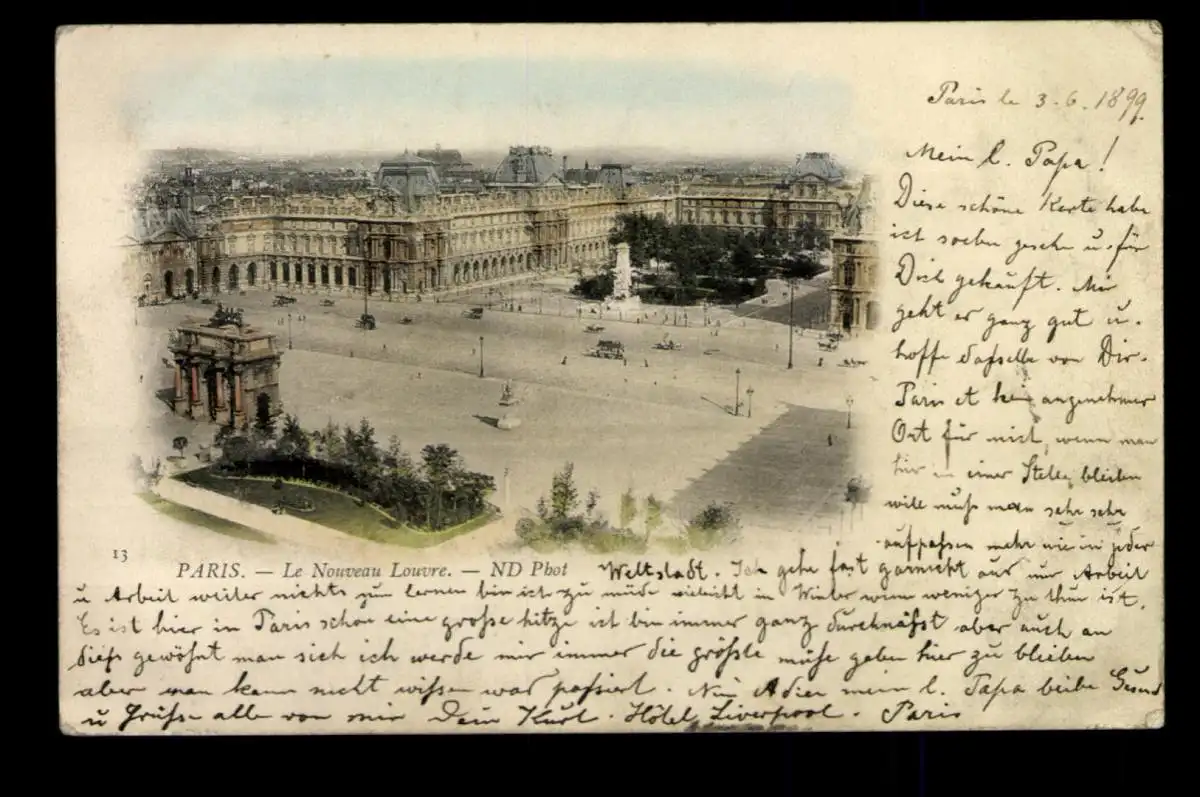 Paris le 3.6.1899.
Mein l. Papa!
Diese schöne Karte habe
ich soeben gesehn u. für
Dich gekauft. Mir
geht er ganz gut u.
hoffe dasselbe von Dir.
Paris et kein angenehmer
Ort für mich, wenn man
hir in einer Stelle bleiben
will muhs man sehr sehr
aufpassen mehr wie in jeder
13
PARIS. — Le Nouveau Louvre. — ND Phot
Weltstadt. Ich gehe fast garnicht aus nur Arbeit
u Arbeit weiter nichts zum lernen bin ich zu müde vieleicht in Winter wenn weniger zu thun ist.
Es ist hier in Paris schon eine große hitze ich bin immer ganz durchnäßt aber auch an
dießs gewöhnt man sich ich werde mir immer die größte mühe geben hier zu bleiben
aber man kann nicht wißen was paßiert. Nun Adieu mein l. Papa beibe Gesund
u Grüße alle von mir Dein Kurt. Hôtel Liverpool. Paris